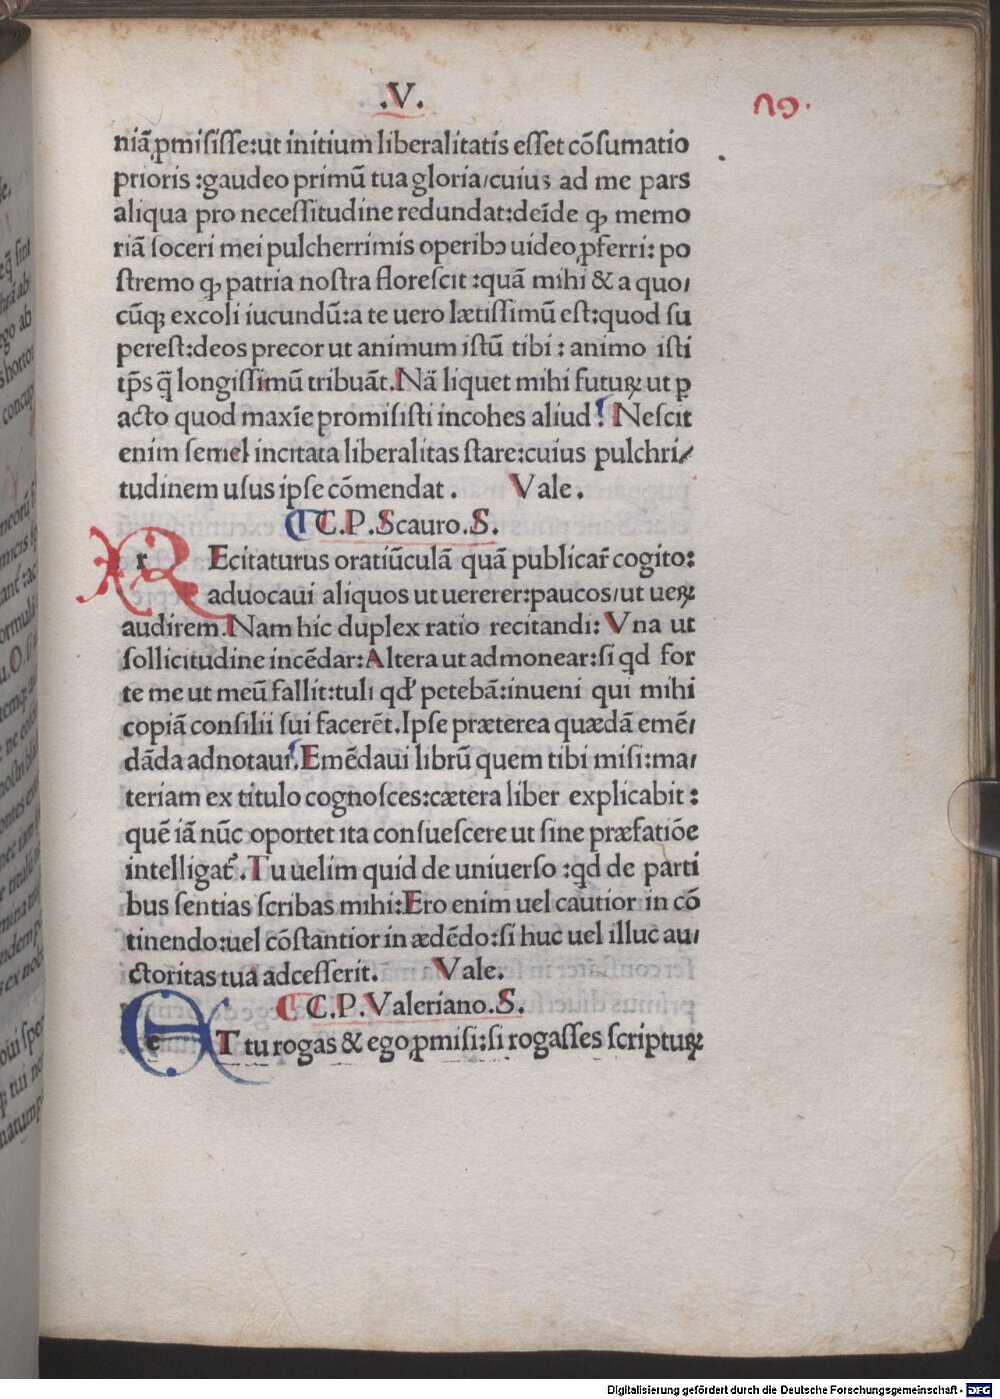 .V.
niã ꝓmisisse:ut initium liberalitatis esset cõsumatio
prioris :gaudeo primũ tua gloria/cuius ad me pars
aliqua pro necessitudine redundat:deĩde ꝙ memo
riã soceri mei pulcherrimis operibꝰ uideo ꝓferri: po
stremo ꝙ patria nostra florescit :quã mihi & a quo/
cũqꝫ excoli iucundũ:a te uero lætissimũ est:quod su
perest:deos precor ut animum istũ tibi : animo isti
tp̃s q̃ longissimũ tribuãt.Nã liquet mihi futuꝝ ut ꝑ
acto quod maxĩe promisisti incohes aliud. Nescit
enim semel incitata liberalitas stare:cuius pulchri/
tudinem usus ipse cõmendat . Vale .
C.P.Scauro.S.
REcitaturus oratiũculã quã publicar̃ cogito:
aduocaui aliquos ut uererer:paucos/ut ueꝝ
audirem.Nam hic duplex ratio recitandi: Vna ut
sollicitudine incẽdar:Altera ut admonear:si qd for
te me ut meũ fallit:tuli qd' petebã:inueni qui mihi
copiã consilii sui facerẽt.Ipse præterea quædã emẽ/
dãda adnotaui.Emẽdaui librũ quem tibi misi:ma/
teriam ex titulo cognosces:cætera liber explicabit :
quẽ iã nũc oportet ita consuescere ut sine præfatiõe
intelligat᷑ .Tu uelim quid de uniuerso :qd de parti
bus sentias scribas mihi:Ero enim uel cautior in cõ
tinendo:uel cõstantior in ædẽdo:si huc uel illuc au/
ctoritas tua adcesserit. Vale.
C.P.Valeriano.S.
ET tu rogas & ego ꝓmisi:si rogasses scriptuꝝ
Digitalisierung gefördert durch die Deutsche Forschungsgemeinschaft - DFG